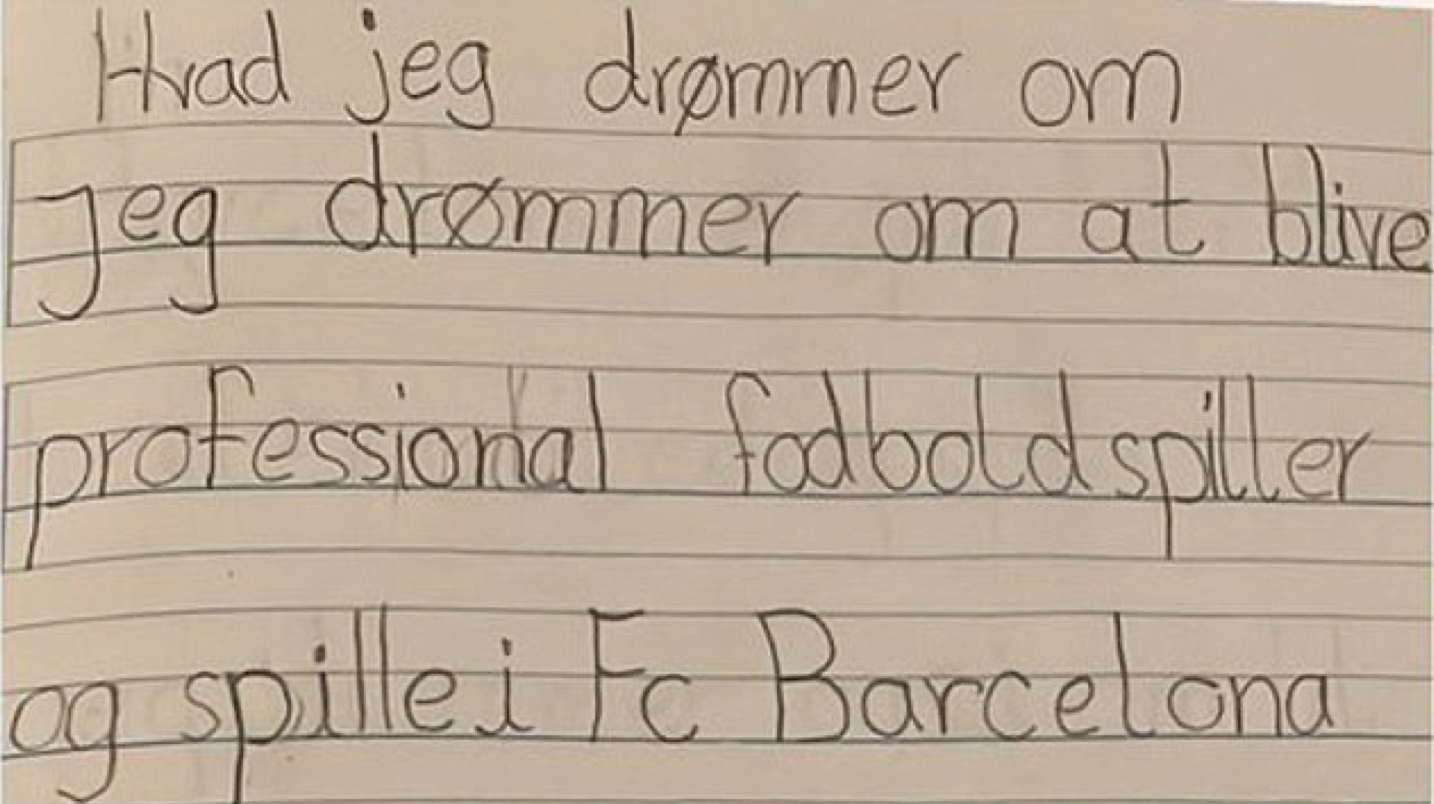 Hvad jeg drømmer om
Jeg drømmer om at blive
professional fodboldspiller
og spille i Fc Barcelona